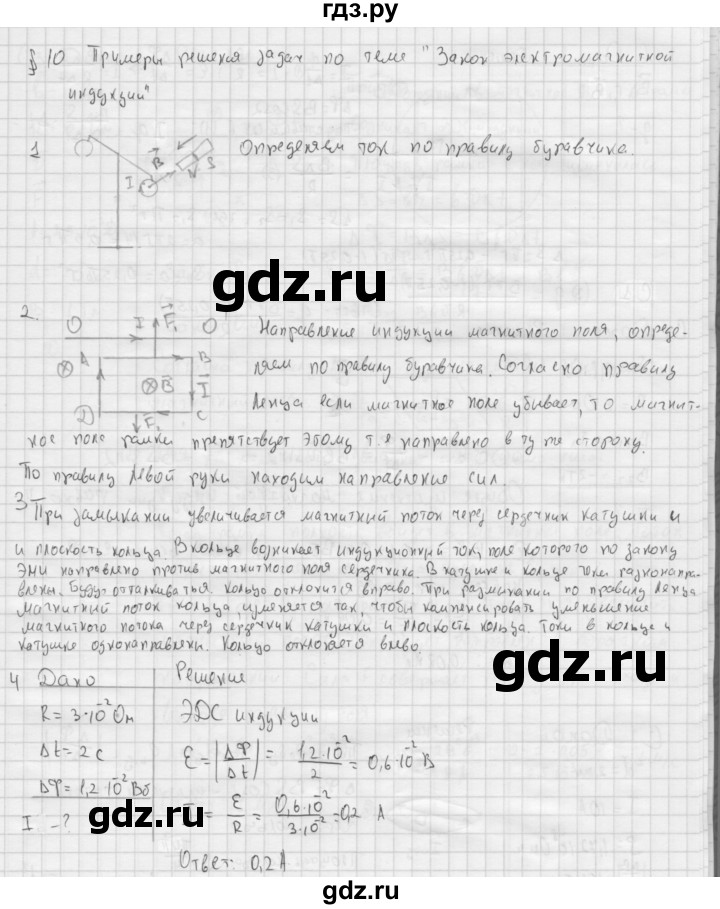 гдз.ру
§ 10 Примеры решения задач по теме "Закон электромагнитной
индукции"
1 Определяем ток по правилу буравчика.
I B S
gdz.ru
2.
O I F₁ O'
A B
B I
D F₁ C
Направление индукции магнитного поля, опреде-
ляем по правилу буравчика. Согласно правилу
Ленца если магнитное поле убывает, то магнит-
ное поле рамки препятствует этому т.е направлено в ту же сторону.
По правилу левой руки находим направление сил.
3 При замыкании увеличивается магнитный поток через сердечник катушки и
и плоскость кольца. В кольце возникает индукционный ток, поле которого по закону
ЭМИ направлено против магнитного поля сердечника. В катушке и кольце токи разнонапра-
влены. Будут отталкиваться. Кольцо отклонится вправо. При размыкании по правилу Ленца
магнитный поток кольца изменяется так, чтобы компенсировать уменьшение
магнитного потока через сердечник катушки и плоскость кольца. Токи в кольце и
катушке однонаправлени. Кольцо отклоняется влево.
gdz.ru
4 Дано Решение
R = 3·10⁻² Ом ЭДС индукции
Δt = 2 с ℰ = |ΔΦ/Δt| = 1,2·10⁻²/2 = 0,6·10⁻² В
ΔΦ = 1,2·10⁻² Вб
I - ? I = ℰ/R = 0,6·10⁻²/3·10⁻² = 0,2 А
Ответ: 0,2 А
gdz.ru